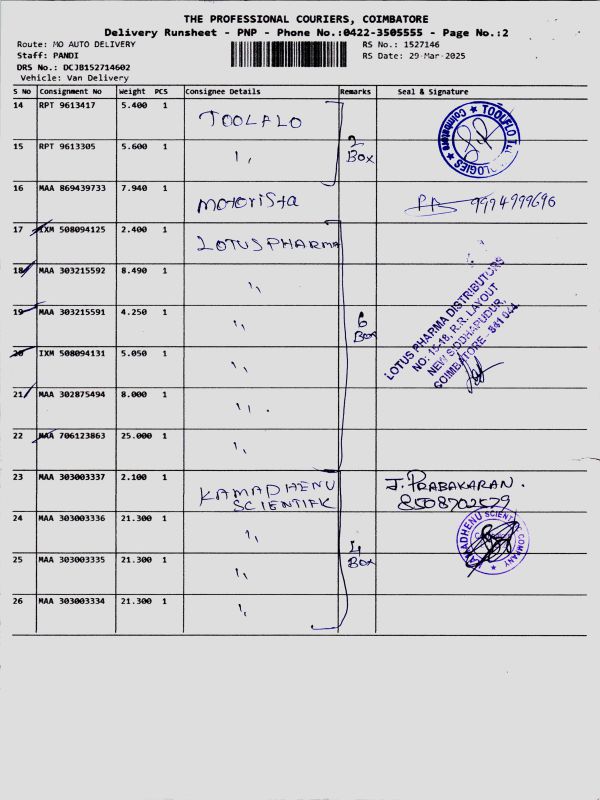 THE PROFESSIONAL COURIERS, COIMBATORE
Delivery Runsheet - PNP - Phone No.:0422-3505555 - Page No.:2
Route: MO AUTO DELIVERY
Staff: PANDI
DRS No.: DCJB152714602
Vehicle: Van Delivery
RS No.: 1527146
RS Date: 29-Mar-2025
S No Consignment No Weight PCS Consignee Details Remarks Seal & Signature
14 RPT 9613417 5.400 1 TOOLFLO
15 RPT 9613305 5.600 1 "
2 Box
COIMBATORE ★ TOOLFLO
16 MAA 869439733 7.940 1 Motorista 9994799696
17 IXM 508094125 2.400 1 LOTUS PHARMA
18 MAA 303215592 8.490 1 "
19 MAA 303215591 4.250 1 "
20 IXM 508094131 5.050 1 "
21 MAA 302875494 8.000 1 "
22 MAA 706123863 25.000 1 "
6 Box
LOTUS PHARMA DISTRIBUTORS
NO: 15-18, R.R. LAYOUT
NEW SIDDHAPUDUR,
COIMBATORE - 641 044.
23 MAA 303003337 2.100 1 KAMADHENU SCIENTIFIC
24 MAA 303003336 21.300 1 "
25 MAA 303003335 21.300 1 "
26 MAA 303003334 21.300 1 "
4 Box
J. PRABAKARAN.
8508702579
KAMADHENU SCIENTIFIC COMPANY ★